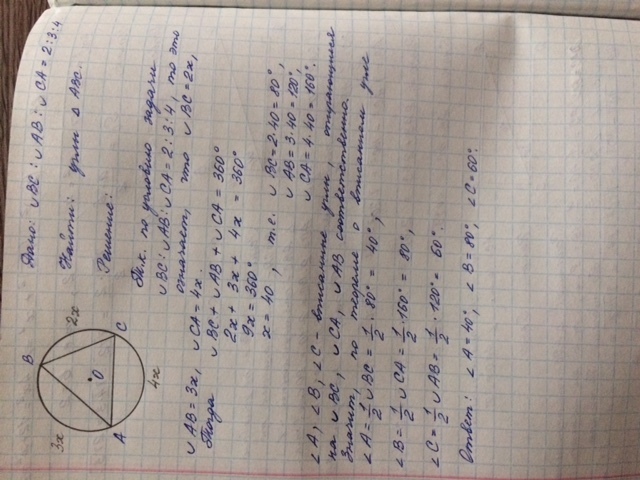 Дано: ∪BC : ∪AB : ∪CA = 2:3:4
Найти: углы Δ ABC.
Решение:
B
2x
3x
O
A
C
4x
Т.к. по условию задачи
∪BC : ∪AB : ∪CA = 2:3:4, то это
означает, что ∪BC = 2x,
∪AB = 3x, ∪CA = 4x.
Тогда ∪BC + ∪AB + ∪CA = 360°
2x + 3x + 4x = 360°
9x = 360°
x = 40, т.е. ∪BC = 2·40 = 80°,
∪AB = 3·40 = 120°,
∪CA = 4·40 = 160°.
∠A, ∠B, ∠C – вписанные углы, опирающиеся
на ∪BC, ∪CA, ∪AB соответственно.
Значит, по теореме о вписанном угле
∠A = 1/2 ∪BC = 1/2 · 80° = 40°,
∠B = 1/2 ∪CA = 1/2 · 160° = 80°,
∠C = 1/2 ∪AB = 1/2 · 120° = 60°.
Ответ: ∠A = 40°, ∠B = 80°, ∠C = 60°.